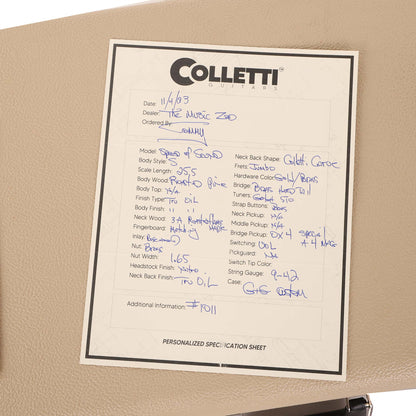 COLLETTI
GUITARS
Date: 11/4/93
Dealer: The Music Zoo
Ordered By:
Model: Speed of Sound
Body Style: S
Scale Length: 25.5
Body Wood: Roasted Pine
Body Top: N/A
Finish Type: Tru Oil
Body Finish: " "
Neck Wood: 3A
Fingerboard:
Inlay:
Nut: Brass
Nut Width: 1.65
Headstock Finish: Nitro
Neck Back Finish: Tru Oil
Neck Back Shape: Colletti Carve
Frets: Jumbo
Hardware Color: Gold/Brass
Bridge: Brass
Tuners: Gotoh 510
Strap Buttons: Brass
Neck Pickup: N/A
Middle Pickup: N/A
Bridge Pickup: DX4 Special
A4 Mag
Switching: VOL
Pickguard: NA
Switch Tip Color:
String Gauge: 9-42
Case: G&G Custom
Additional Information: #1011
PERSONALIZED SPECIFICATION SHEET